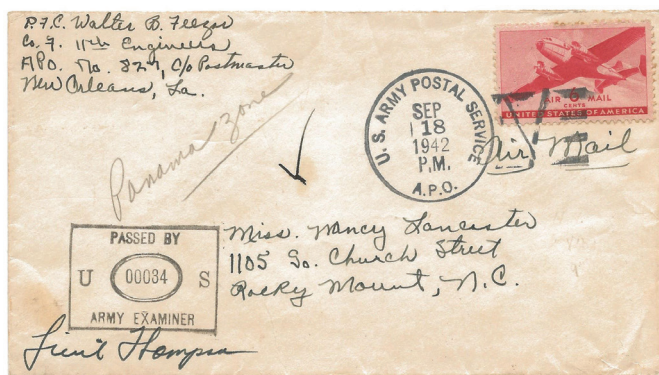 P.F.C. Walter B. Feezor
Co. F. 11th Engineers
A.P.O. No. 827, C/o Postmaster
New Orleans, La.
Panama Zone
U.S. ARMY POSTAL SERVICE
SEP
18
1942
P.M.
A.P.O.
6
CENTS
AIR MAIL
UNITED STATES OF AMERICA
Air Mail
PASSED BY
U 00034 S
ARMY EXAMINER
Miss. Nancy Lancaster
1105 So. Church Street
Rocky Mount, N.C.
Lieut Thompson